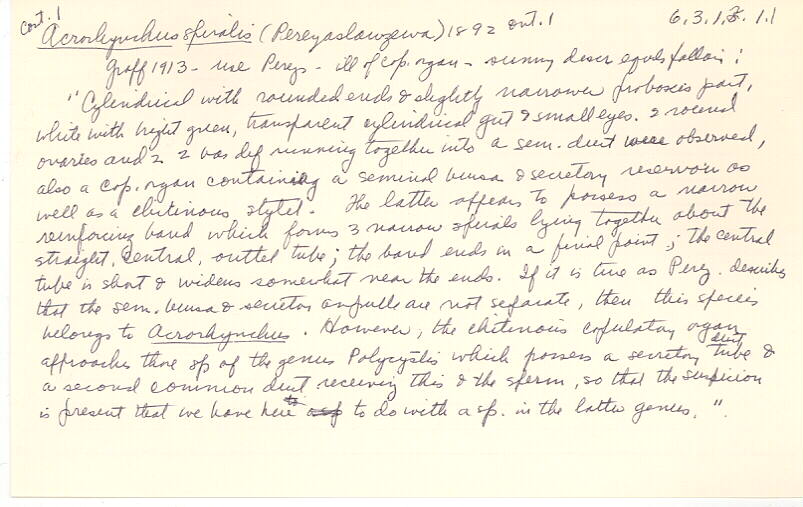 cont. 1
Acrorhynchus spiralis (Pereyaslawzewa) 1892 cont. 1 6.3.1.3.1.1
Graff 1913 - use Perey - ill of cop. organ - summy descr equals follow :
"Cylindrical with rounded ends & slightly narrower proboscis part,
white with bright green, transparent cylindrical gut & small eyes. 2 round
ovaries and 2 vas def running together into a sem. duct were observed,
also a cop. organ containing a seminal bursa & secretory reservoir as
well as a chitinous stylet. The latter appears to possess a narrow
reinforcing band which forms 3 narrow spirals lying together about the
straight, central, outlet tube; the band ends in a final point; the central
tube is short & widens somewhat near the ends. If it is true as Perez. describes
that the sem. bursa & secretory ampulle are not separate, then this species
belongs to Acrorhynchus. However, the chitinous copulatory organ
approaches those sp of the genus Polycystis which possess a secretory duct tube &
a second common duct receiving this & the sperm, so that the suspicion
is present that we have here to do with a sp. in the latter genus.".